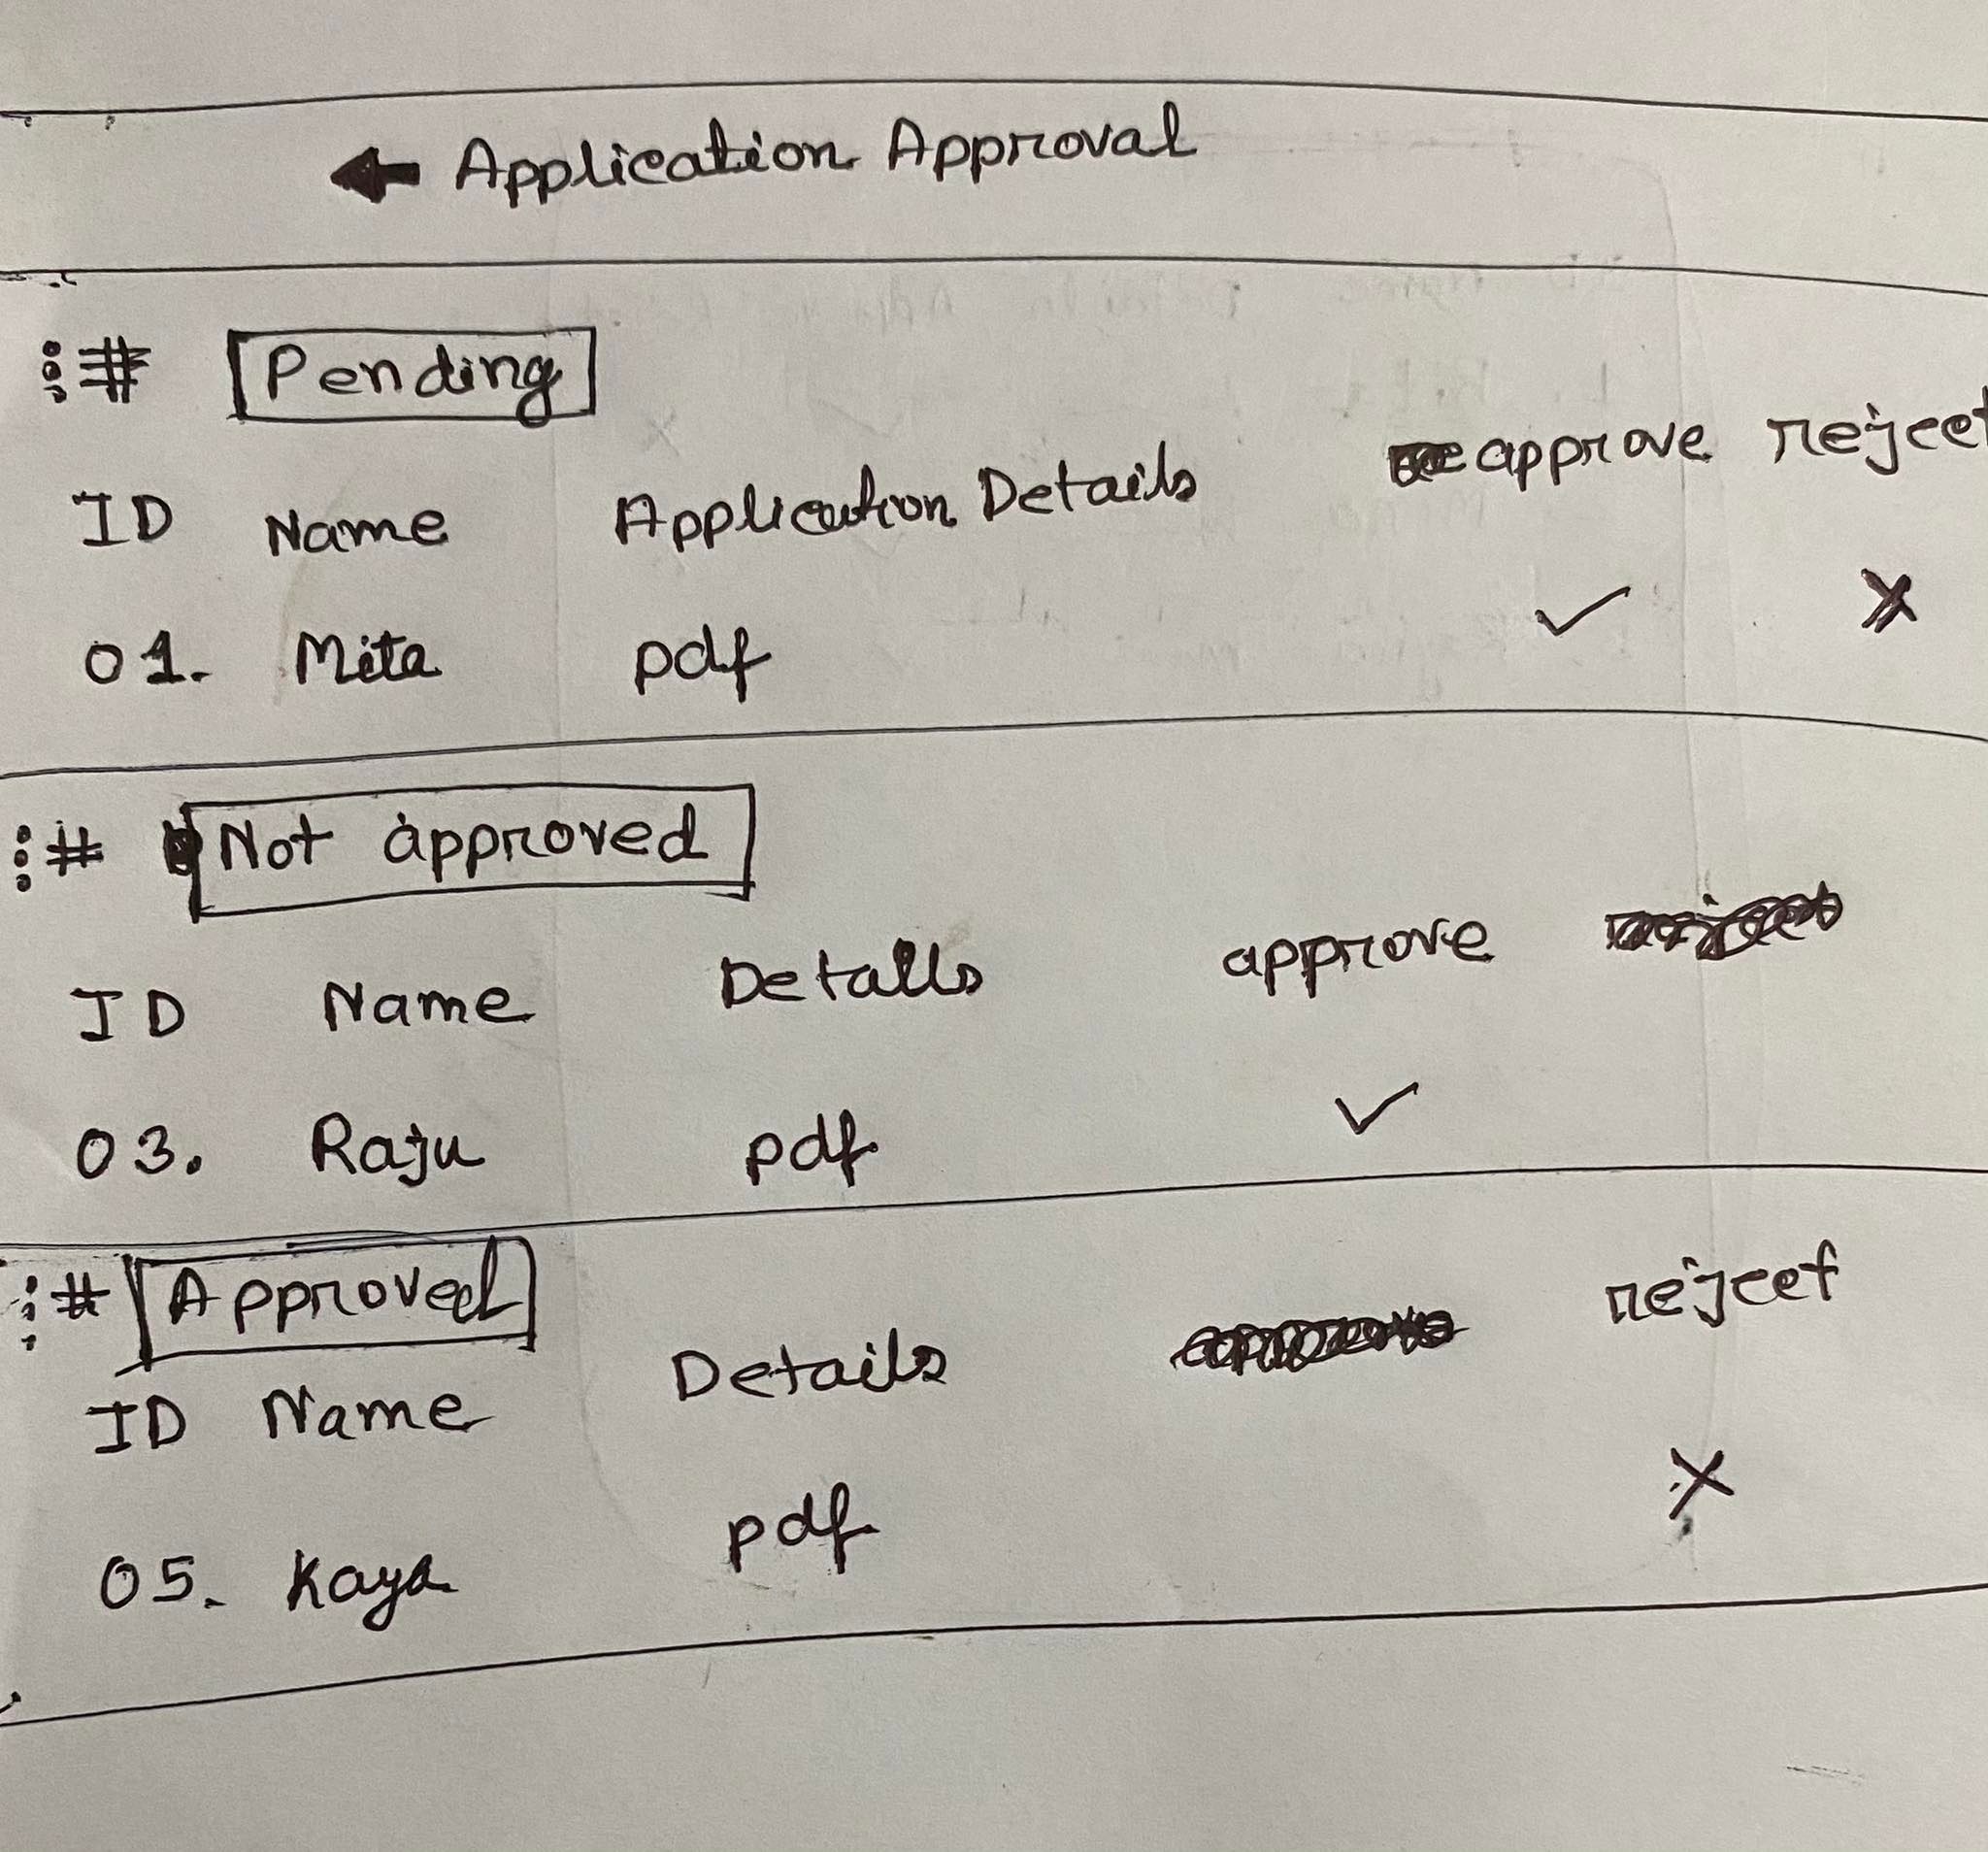 ← Application Approval
:# Pending
ID Name Application Details approve reject
01. Mita pdf ✓ ✗
:# Not approved
ID Name Details approve
03. Raju pdf ✓
:# Approved
ID Name Details reject
05. Kaya pdf ✗